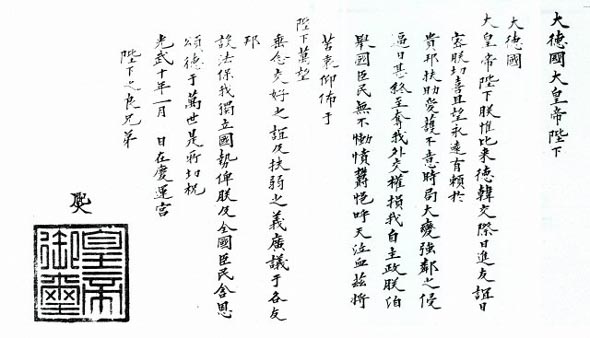 大德國大皇帝陛下
大德國
大皇帝陛下朕惟比来德韓交際日進友誼日
密朕切喜且望永遠有賴於
貴邦扶助愛護不意時局大變強鄰之侵
逼日甚終至奪我外交權損我自主政朕洎
舉國臣民無不慟憤鬱悒呼天泣血茲將
苦衷仰佈于
陛下萬望
垂念交好之誼及扶弱之義廣議于各友
邦
設法保我獨立國勢俾朕及全國臣民含恩
頌德于萬世是所切祝
光武十年一月 日在慶運宮
陛下之良兄弟
皇帝
御璽